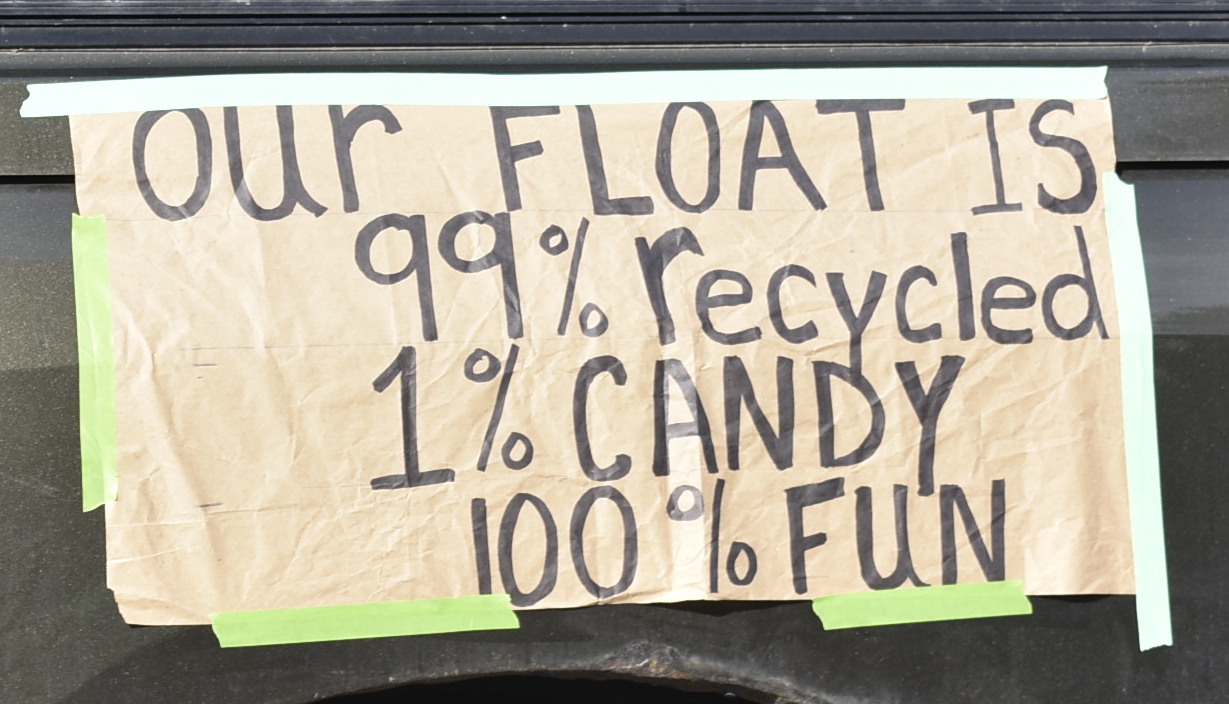 our FLOAT IS
99% recycled
1% CANDY
100% FUN